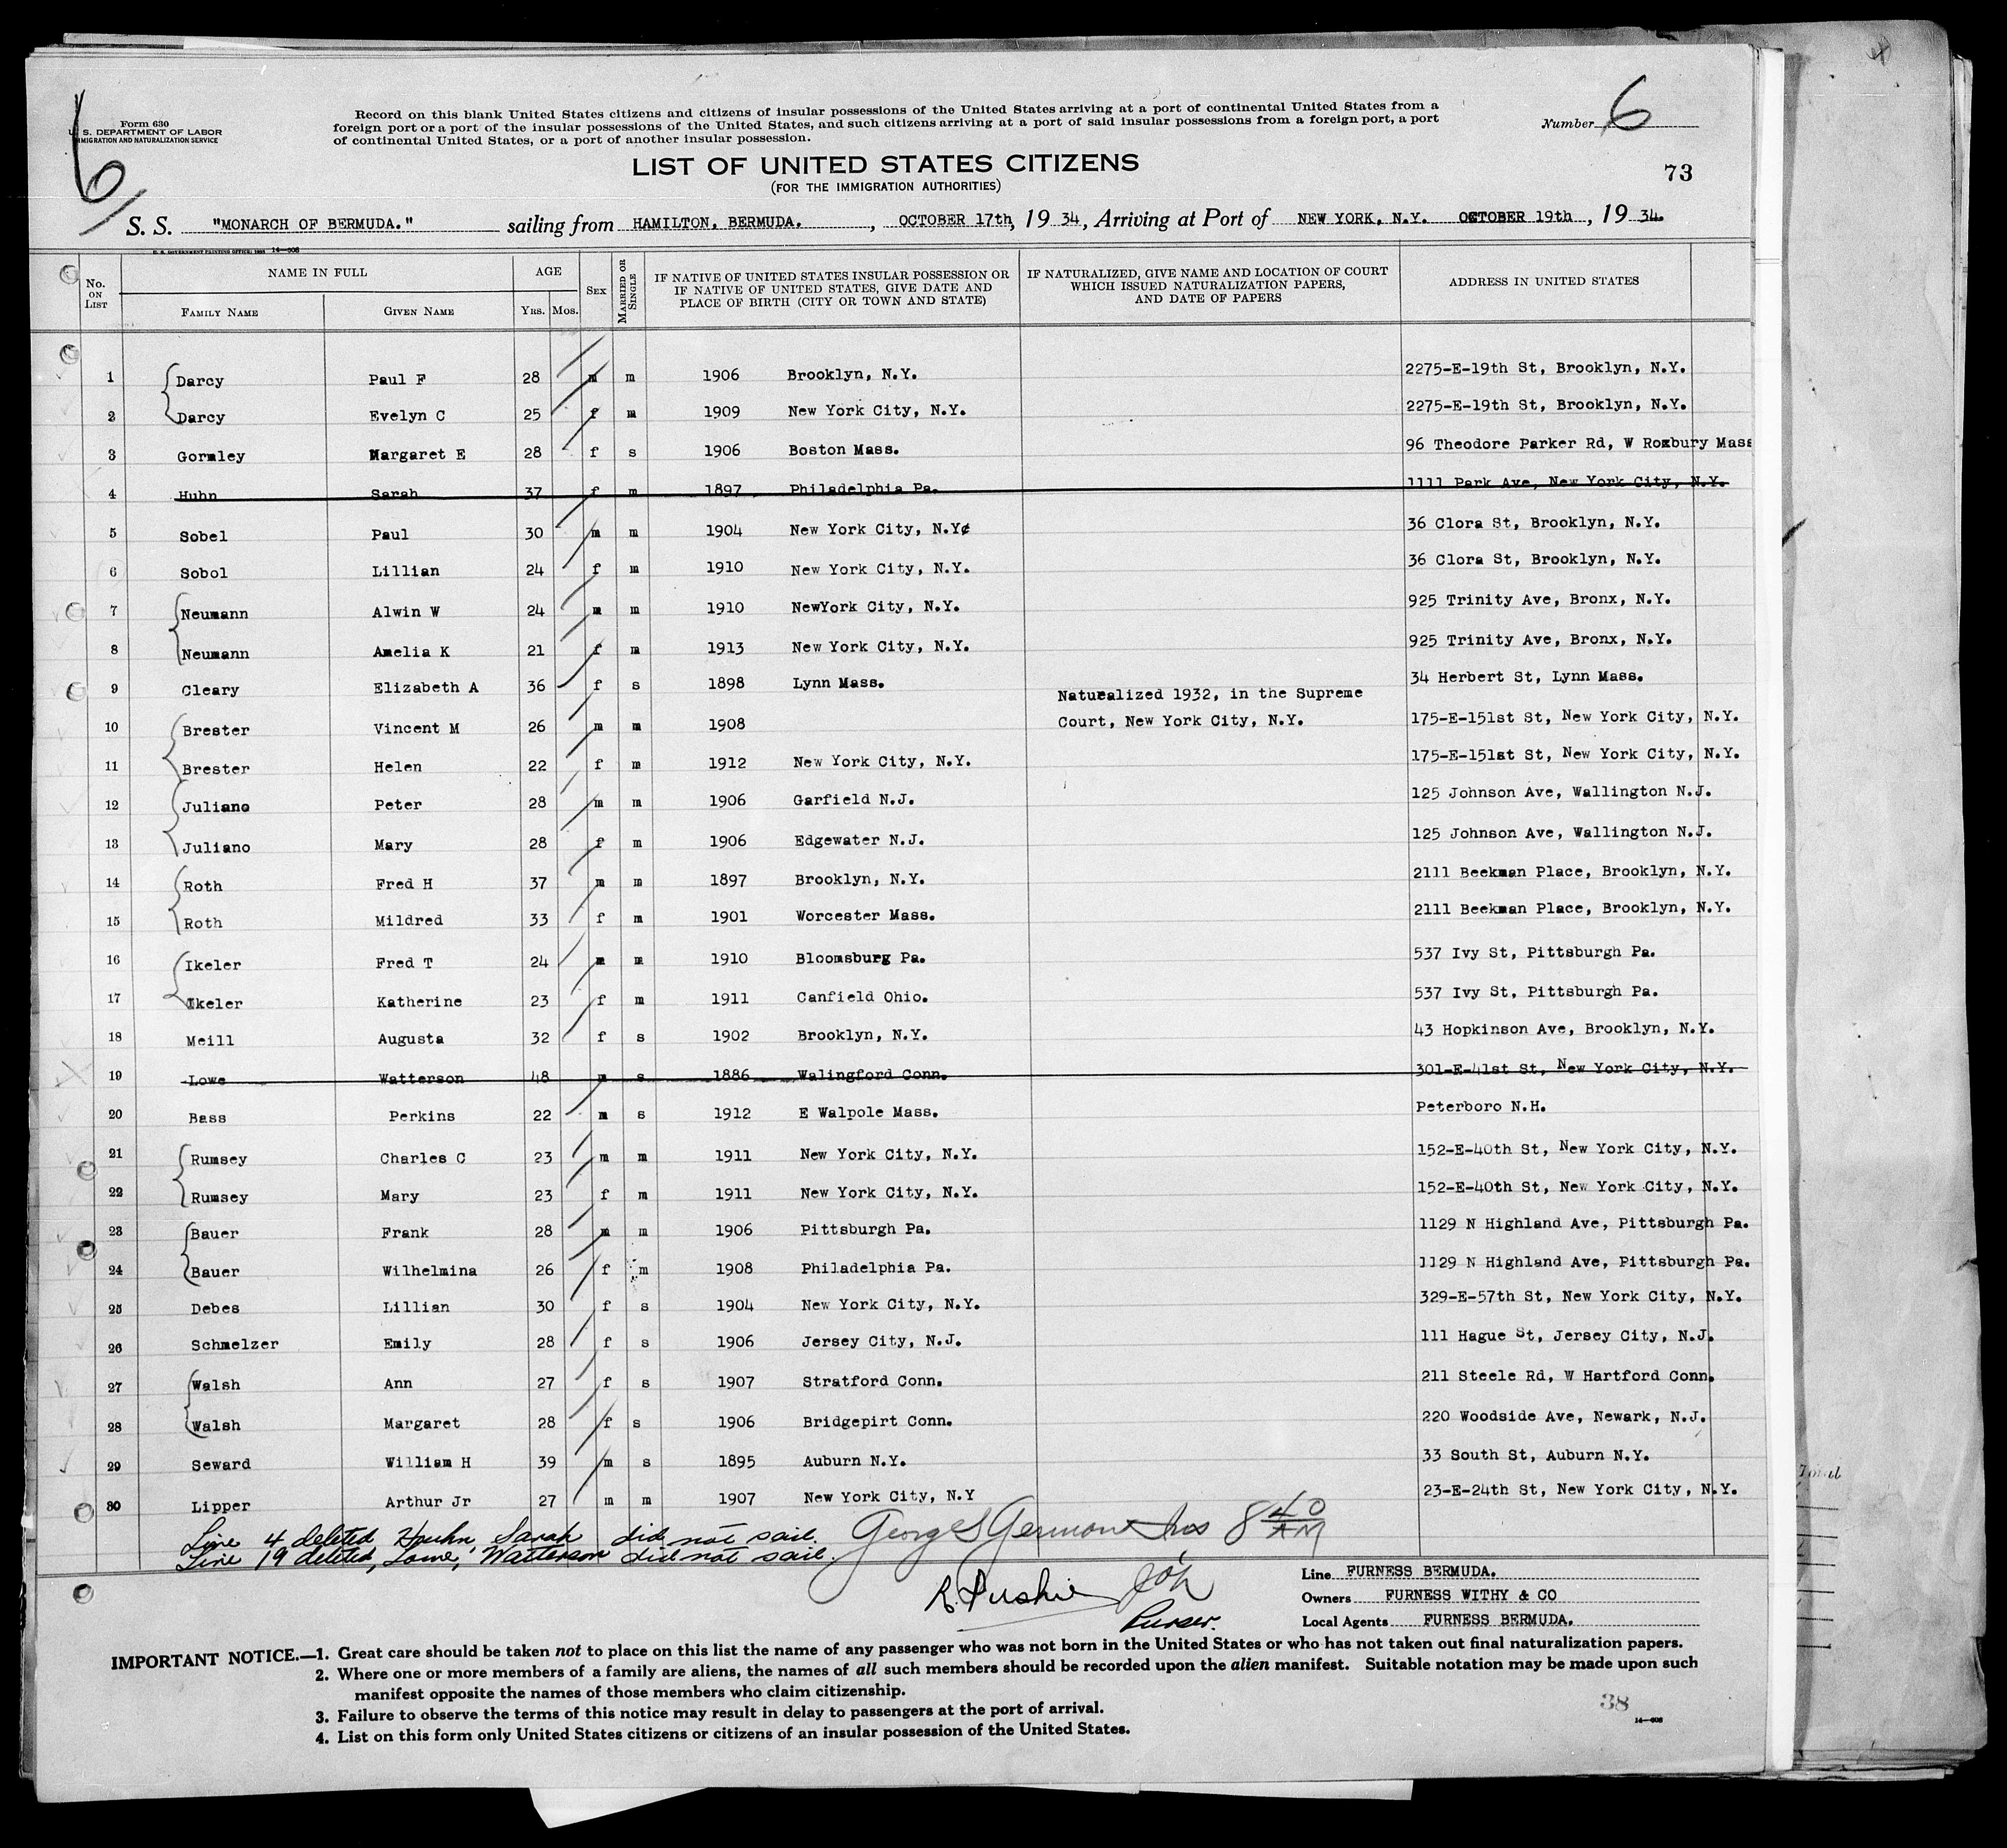 6
Form 630
U. S. DEPARTMENT OF LABOR
IMMIGRATION AND NATURALIZATION SERVICE
Record on this blank United States citizens and citizens of insular possessions of the United States arriving at a port of continental United States from a
foreign port or a port of the insular possessions of the United States, and such citizens arriving at a port of said insular possessions from a foreign port, a port
of continental United States, or a port of another insular possession.
Number 6
LIST OF UNITED STATES CITIZENS
(FOR THE IMMIGRATION AUTHORITIES)
73
S. S. "MONARCH OF BERMUDA." sailing from HAMILTON, BERMUDA. , OCTOBER 17th, 19 34, Arriving at Port of NEW YORK, N.Y. OCTOBER 19th , 19 34.
U. S. GOVERNMENT PRINTING OFFICE: 1933 14-608
No. ON LIST NAME IN FULL AGE SEX MARRIED OR SINGLE IF NATIVE OF UNITED STATES INSULAR POSSESSION OR IF NATIVE OF UNITED STATES, GIVE DATE AND PLACE OF BIRTH (CITY OR TOWN AND STATE) IF NATURALIZED, GIVE NAME AND LOCATION OF COURT WHICH ISSUED NATURALIZATION PAPERS, AND DATE OF PAPERS ADDRESS IN UNITED STATES
FAMILY NAME GIVEN NAME YRS. MOS.
1 Darcy Paul F 28 m m 1906 Brooklyn, N.Y. 2275-E-19th St, Brooklyn, N.Y.
2 Darcy Evelyn C 25 f m 1909 New York City, N.Y. 2275-E-19th St, Brooklyn, N.Y.
3 Gormley Margaret E 28 f s 1906 Boston Mass. 96 Theodore Parker Rd, W Roxbury Mass
4 Huhn Sarah 37 f m 1897 Philadelphia Pa. 1111 Park Ave, New York City, N.Y.
5 Sobel Paul 30 m m 1904 New York City, N.Y¢ 36 Clora St, Brooklyn, N.Y.
6 Sobol Lillian 24 f m 1910 New York City, N.Y. 36 Clora St, Brooklyn, N.Y.
7 Neumann Alwin W 24 m m 1910 NewYork City, N.Y. 925 Trinity Ave, Bronx, N.Y.
8 Neumann Amelia K 21 f m 1913 New York City, N.Y. 925 Trinity Ave, Bronx, N.Y.
9 Cleary Elizabeth A 36 f s 1898 Lynn Mass. 34 Herbert St, Lynn Mass.
Naturalized 1932, in the Supreme
10 Brester Vincent M 26 m m 1908 Court, New York City, N.Y. 175-E-151st St, New York City, N.Y.
11 Brester Helen 22 f m 1912 New York City, N.Y. 175-E-151st St, New York City, N.Y.
12 Juliano Peter 28 m m 1906 Garfield N.J. 125 Johnson Ave, Wallington N.J.
13 Juliano Mary 28 f m 1906 Edgewater N.J. 125 Johnson Ave, Wallington N.J.
14 Roth Fred H 37 m m 1897 Brooklyn, N.Y. 2111 Beekman Place, Brooklyn, N.Y.
15 Roth Mildred 33 f m 1901 Worcester Mass. 2111 Beekman Place, Brooklyn, N.Y.
16 Ikeler Fred T 24 m m 1910 Bloomsburg Pa. 537 Ivy St, Pittsburgh Pa.
17 Ikeler Katherine 23 f m 1911 Canfield Ohio. 537 Ivy St, Pittsburgh Pa.
18 Meill Augusta 32 f s 1902 Brooklyn, N.Y. 43 Hopkinson Ave, Brooklyn, N.Y.
19 Lowe Watterson 48 m s 1886 Walingford Conn. 301-E-41st St, New York City, N.Y.
20 Bass Perkins 22 m s 1912 E Walpole Mass. Peterboro N.H.
21 Rumsey Charles C 23 m m 1911 New York City, N.Y. 152-E-40th St, New York City, N.Y.
22 Rumsey Mary 23 f m 1911 New York City, N.Y. 152-E-40th St, New York City, N.Y.
23 Bauer Frank 28 m m 1906 Pittsburgh Pa. 1129 N Highland Ave, Pittsburgh Pa.
24 Bauer Wilhelmina 26 f m 1908 Philadelphia Pa. 1129 N Highland Ave, Pittsburgh Pa.
25 Debes Lillian 30 f s 1904 New York City, N.Y. 329-E-57th St, New York City, N.Y.
26 Schmelzer Emily 28 f s 1906 Jersey City, N.J. 111 Hague St, Jersey City, N.J.
27 Walsh Ann 27 f s 1907 Stratford Conn. 211 Steele Rd, W Hartford Conn.
28 Walsh Margaret 28 f s 1906 Bridgepirt Conn. 220 Woodside Ave, Newark, N.J.
29 Seward William H 39 m s 1895 Auburn N.Y. 33 South St, Auburn N.Y.
30 Lipper Arthur Jr 27 m m 1907 New York City, N.Y 23-E-24th St, New York City, N.Y.
Line 4 deleted, Huhn, Sarah did not sail.
Line 19 deleted, Lowe, Watterson did not sail.
8 40 AM
Purser.
Line FURNESS BERMUDA.
Owners FURNESS WITHY & CO
Local Agents FURNESS BERMUDA.
IMPORTANT NOTICE.—1. Great care should be taken not to place on this list the name of any passenger who was not born in the United States or who has not taken out final naturalization papers.
2. Where one or more members of a family are aliens, the names of all such members should be recorded upon the alien manifest. Suitable notation may be made upon such
manifest opposite the names of those members who claim citizenship.
3. Failure to observe the terms of this notice may result in delay to passengers at the port of arrival.
4. List on this form only United States citizens or citizens of an insular possession of the United States.
38
14-608
Total